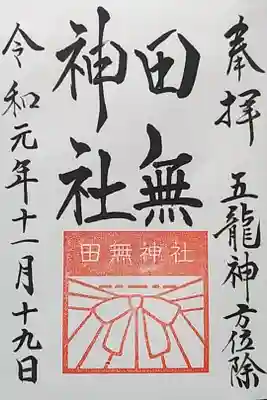 奉拝
五龍神方位除
田無
神社
令和元年十一月十九日
田無神社